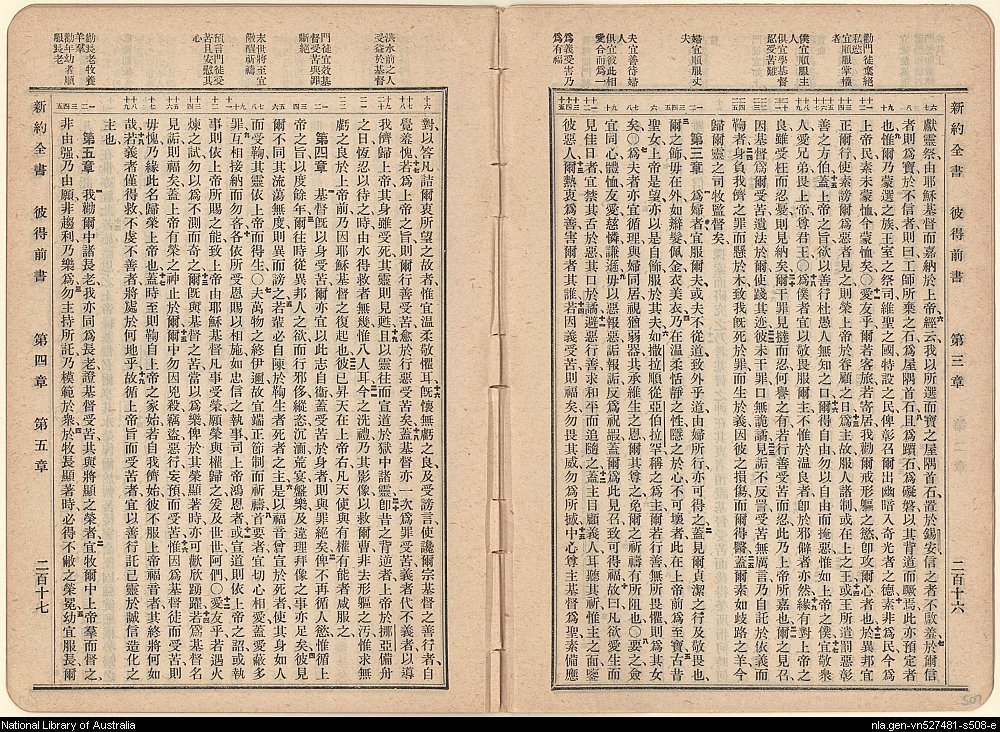 新約全書 彼得前書 第三章 二百十六
勸門徒棄絕
私慾
宜順服掌權
者
僕宜順服主
人
俱宜學基督
忍受苦難
婦宜順服丈
夫
夫宜善待婦
人
俱宜彼此相
愛合而為一
為義受害乃
為有福
獻靈祭由耶穌基督而嘉納於上帝經云我以所選而寶之屋隅首石置於錫安信之者不啟羞於爾信
者則為寶於不信者則曰工師所棄之石為屋隅首石且為躓石為礙磐以其背道而蹶焉此亦預定者
也惟爾乃蒙選之族王室之祭司維聖之國特設之民俾彰召爾出幽暗入奇光者之德素非為民今為
上帝民素未蒙恤今蒙恤矣○愛友乎爾若客旅若寄居我勸爾戒形軀之慾卽攻爾心者也於異邦宜
正爾行使素謗爾為惡者見之則榮上帝於眷顧之日為主故服人諸制或在上之王或王所遣罰惡彰
善之方伯蓋上帝之旨欲以善行杜愚人無知之口爾得自由勿以自由而掩惡惟如上帝之僕宜敬衆
人愛兄弟畏上帝尊君王○為僕者宜以敬畏服爾主不惟於溫良者卽於邪僻者亦然緣有對上帝之
良雖受枉而忍憂則見納矣爾干罪見撻而忍何譽之有若行善受苦而忍此乃上帝所嘉也爾之見召
因基督為爾受苦遺法於爾使踐其迹彼未干罪口無詭譎見詬不反詈受苦無厲言乃自託於依義而
鞫者身負我儕之罪而懸於木致我旣死於罪而生於義因彼之損傷而爾得醫蓋爾素如歧路之羊今
歸爾靈之司牧監督矣
第三章 為婦者宜服爾夫或夫不從道致外乎道由婦所行亦可得之蓋見爾貞潔之行及敬畏也
爾之飾毋在外如辮髮佩金衣美衣乃在溫柔恬靜之性隱之於心不可壞者此在上帝前為至寶古昔
聖女上帝是望亦以是自飾服於其夫如撒拉順從亞伯拉罕稱之為主爾若行善無所畏懼則為其女
矣○為夫者亦宜循理與婦同居視猶弱器共承維生之恩爾其尊之免爾之祈禱有所阻也○要之僉
宜同心體恤友愛慈憐謙遜毋以惡報惡詬報詬反為祝嘏蓋爾為此見召致可得福故曰凡欲愛生而
見佳日者宜禁其舌於惡其口於譎避惡行善求和平而追隨之蓋主目顧義人耳聽其祈惟主之面鑒
彼惡人爾熱衷為善害爾者其誰若因義受苦則福矣勿畏其威勿為所撼中心尊主基督為聖素備應
洪水前之人
受益於基督
門徒宜效基
督受苦與罪
斷絕
末世將至宜
儆醒祈禱
預言門徒受
苦且安慰其
心
勸長老牧養
羊羣
勸年幼者順
服長老
對以答凡詰爾衷所望之故者惟宜溫柔敬懼耳旣懷無虧之良及受謗言使讒爾宗基督之善行者自
覺羞愧若為上帝之旨則爾行善受苦愈於行惡受苦矣蓋基督亦一次為罪受苦義者代不義者以導
我儕歸上帝其身雖受死其靈則見甦且以靈往而宣道於獄中諸靈卽昔之背逆者上帝於挪亞備舟
之日恆忍以待之時由水得救者無幾惟八人耳今之洗禮乃其影像以救爾曹非去形軀之污惟求無
虧之良於上帝前乃因耶穌基督之復起也彼已昇天在上帝右凡天使與有權有能者咸服之
第四章 基督旣以身受苦爾亦宜以此志自衞蓋受苦於身者則與罪絕矣俾不再循人慾惟循上
帝之旨以度餘年爾往時從異邦人之欲而行邪侈縱恣沉湎荒宴盤樂及違理拜像之事亦足矣彼見
爾不同其流蕩無度則異而謗之若輩必自陳於鞫生者死者之主是以福音曾宣於死者使其身如人
而受鞫其靈依上帝而得生○夫萬物之終伊邇故宜端正節制而祈禱首要者宜切心相愛蓋愛蔽多
罪互相接納而勿吝各依所受恩賜以相施如忠信之執事司上帝鴻恩者或宣道則依上帝之詔或執
事則依上帝所賜之能致上帝由耶穌基督凡事受榮願榮與權歸之爰及世世阿們○愛友乎若遇火
煉之試勿以為不測而奇之爾旣與基督之苦當以為樂俾於其榮顯著時亦可歡欣踴躍若為基督名
見詬則福矣蓋上帝有榮之神止於爾爾中勿因兇殺竊盜惡行妄預而受苦惟因為基督徒而受苦則
毋愧乃緣此名歸榮上帝也蓋時至則鞫自上帝之家始若自我儕始彼不服上帝福音者其終將何如
哉若義者僅得救不虔不善者將處於何地乎故循上帝旨而受苦者宜以善行託己靈於誠信造化之
主也
第五章 我勸爾中諸長老我亦同為長老證基督受苦其與將顯之榮者宜牧爾中上帝羣而督之
非由強乃由願非趨利乃樂為勿主持所託乃模範於衆於牧長顯著時必得不敝之榮冕幼宜服長爾
新約全書 彼得前書 第四章 第五章 二百十七
National Library of Australia
nla.gen-vn527481-s508-e